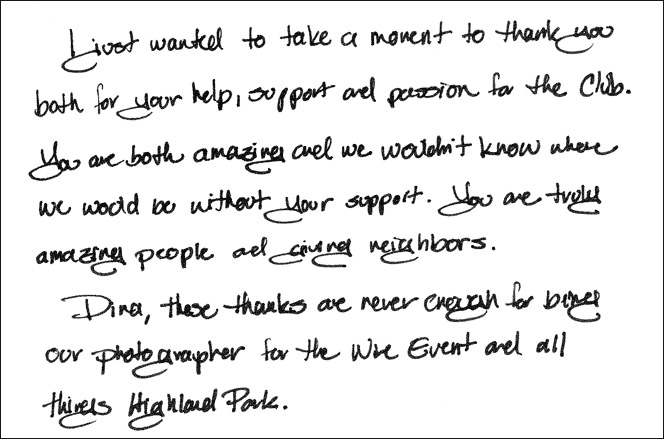 I just wanted to take a moment to thank you
both for your help, support and passion for the Club.
You are both amazing and we wouldn't know where
we would be without your support. You are truly
amazing people and giving neighbors.
Dina, these thanks are never enough for being
our photographer for the Wine Event and all
things Highland Park.